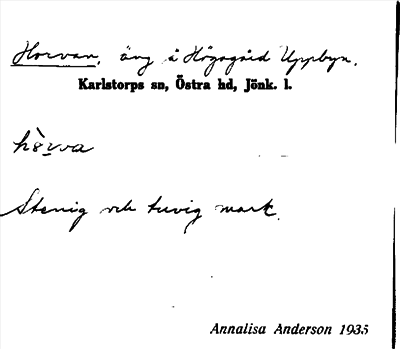 Horvan, äng å Högagärd Uppbyn.
Karlstorps sn, Östra hd, Jönk. l.
Stenig och tuvig mark.
Annalisa Anderson 1935